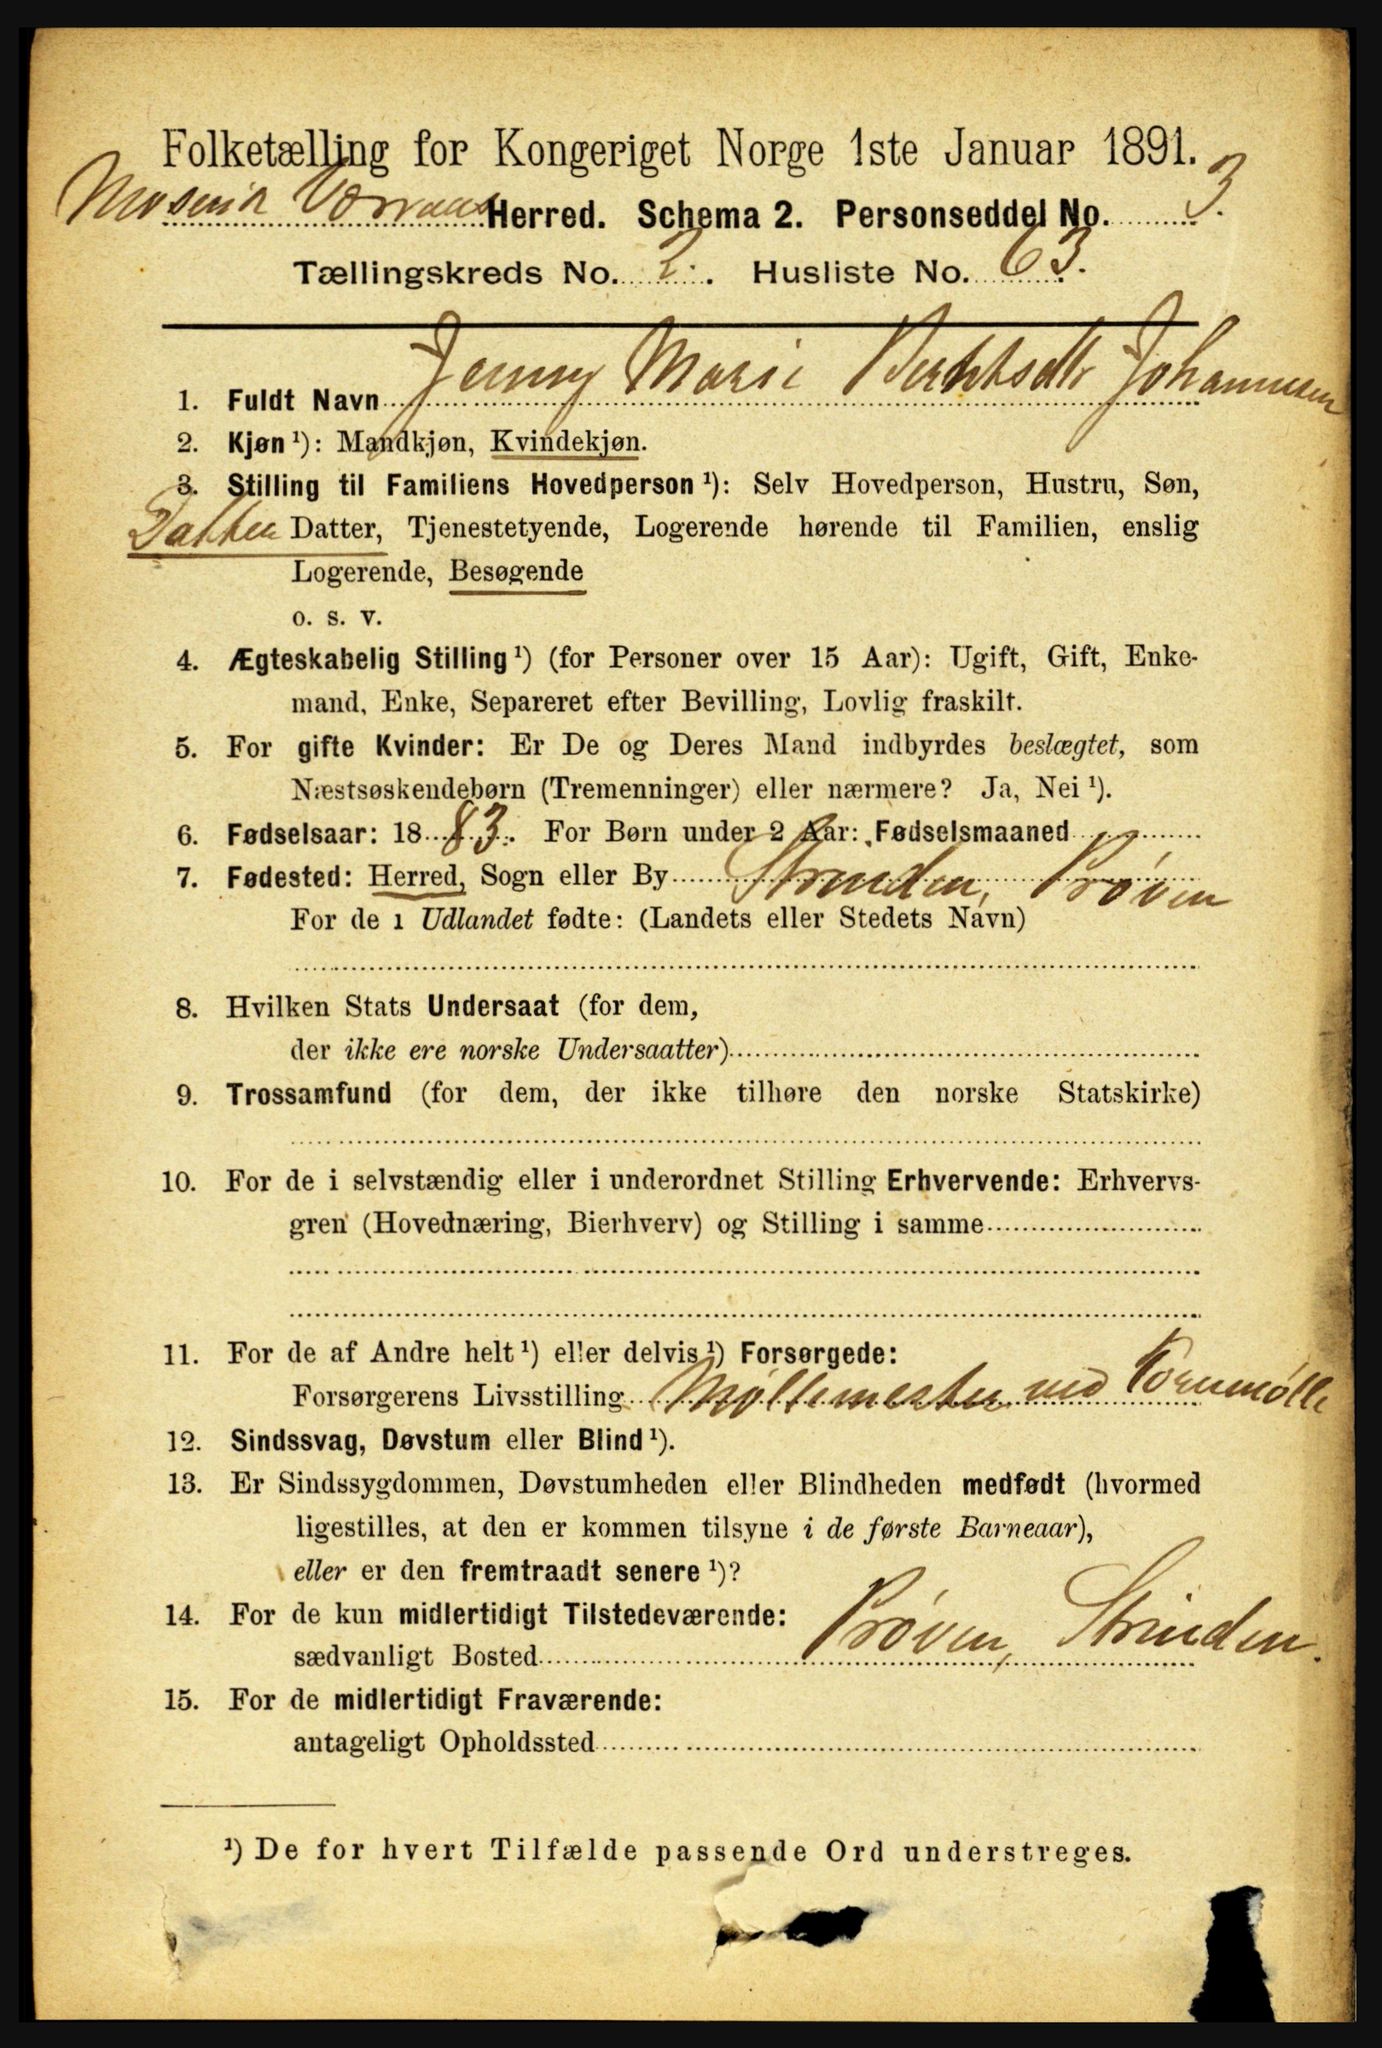 Folketælling for Kongeriget Norge 1ste Januar 1891.
Mosvik Værraas Herred. Schema 2. Personseddel No. 3.
Tællingskreds No. 2. Husliste No. 63.
Jenny Marie Berntsdtr Johannesen
1. Fuldt Navn
2. Kjøn ¹): Mandkjøn, Kvindekjøn.
3. Stilling til Familiens Hovedperson ¹): Selv Hovedperson, Hustru, Søn,
Datter Datter, Tjenestetyende, Logerende hørende til Familien, enslig
Logerende, Besøgende
o. s. v.
4. Ægteskabelig Stilling ¹) (for Personer over 15 Aar): Ugift, Gift, Enke-
mand, Enke, Separeret efter Bevilling, Lovlig fraskilt.
5. For gifte Kvinder: Er De og Deres Mand indbyrdes beslægtet, som
Næstsøskendebørn (Tremenninger) eller nærmere? Ja, Nei ¹).
6. Fødselsaar: 1883. For Børn under 2 Aar: Fødselsmaaned
7. Fødested: Herred, Sogn eller By Strinden, Prøven
For de i Udlandet fødte: (Landets eller Stedets Navn)
8. Hvilken Stats Undersaat (for dem,
der ikke ere norske Undersaatter)
9. Trossamfund (for dem, der ikke tilhøre den norske Statskirke)
10. For de i selvstændig eller i underordnet Stilling Erhvervende: Erhvervs-
gren (Hovednæring, Bierhverv) og Stilling i samme
11. For de af Andre helt ¹) eller delvis ¹) Forsørgede:
Forsørgerens Livsstilling Møllemester ved Kornmølle
12. Sindssvag, Døvstum eller Blind ¹).
13. Er Sindssygdommen, Døvstumheden eller Blindheden medfødt (hvormed
ligestilles, at den er kommen tilsyne i de første Barneaar),
eller er den fremtraadt senere ¹)?
14. For de kun midlertidigt Tilstedeværende:
sædvanligt Bosted Prøven, Strinden.
15. For de midlertidigt Fraværende:
antageligt Opholdssted
¹) De for hvert Tilfælde passende Ord understreges.